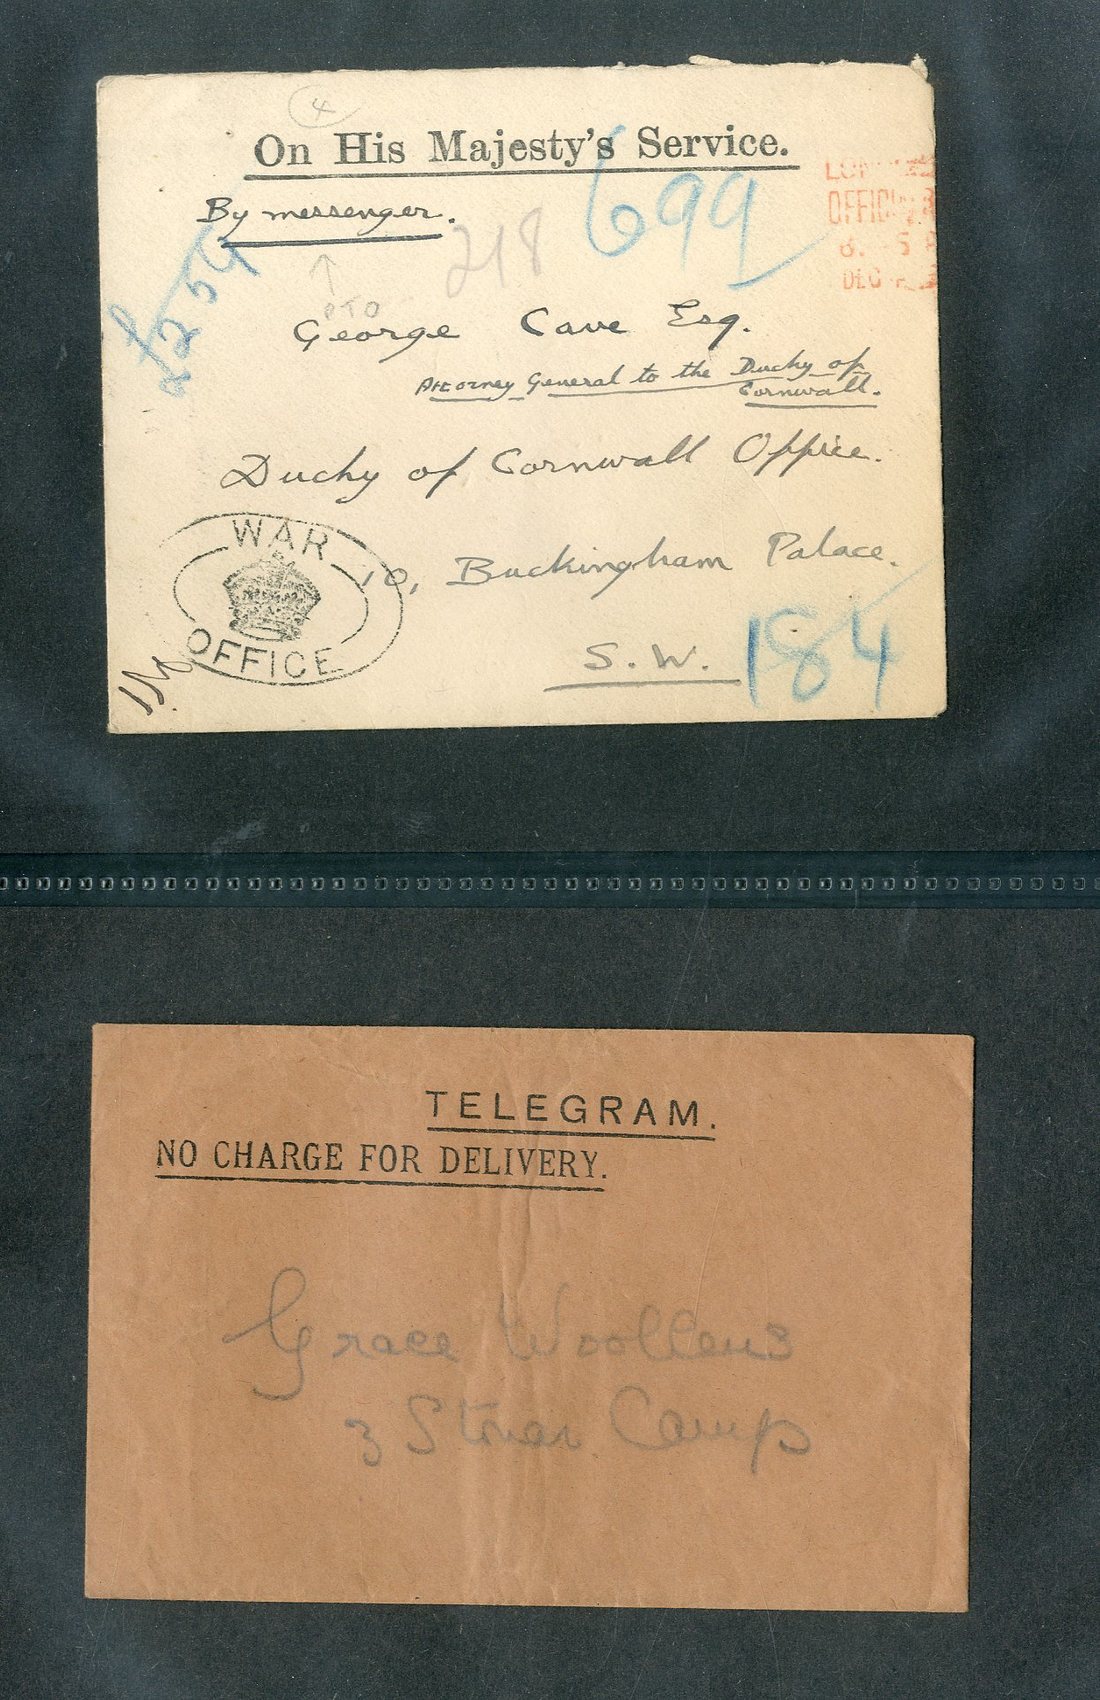 4
On His Majesty's Service.
By messenger.
699
218
£254
PTO
George Cave Esq.
Attorney General to the Duchy of
Cornwall.
Duchy of Cornwall Office.
10, Buckingham Palace.
S.W.
184
WAR
OFFICE
OFFICIAL
DEC
TELEGRAM.
NO CHARGE FOR DELIVERY.
Grace Woollens
3 Camp